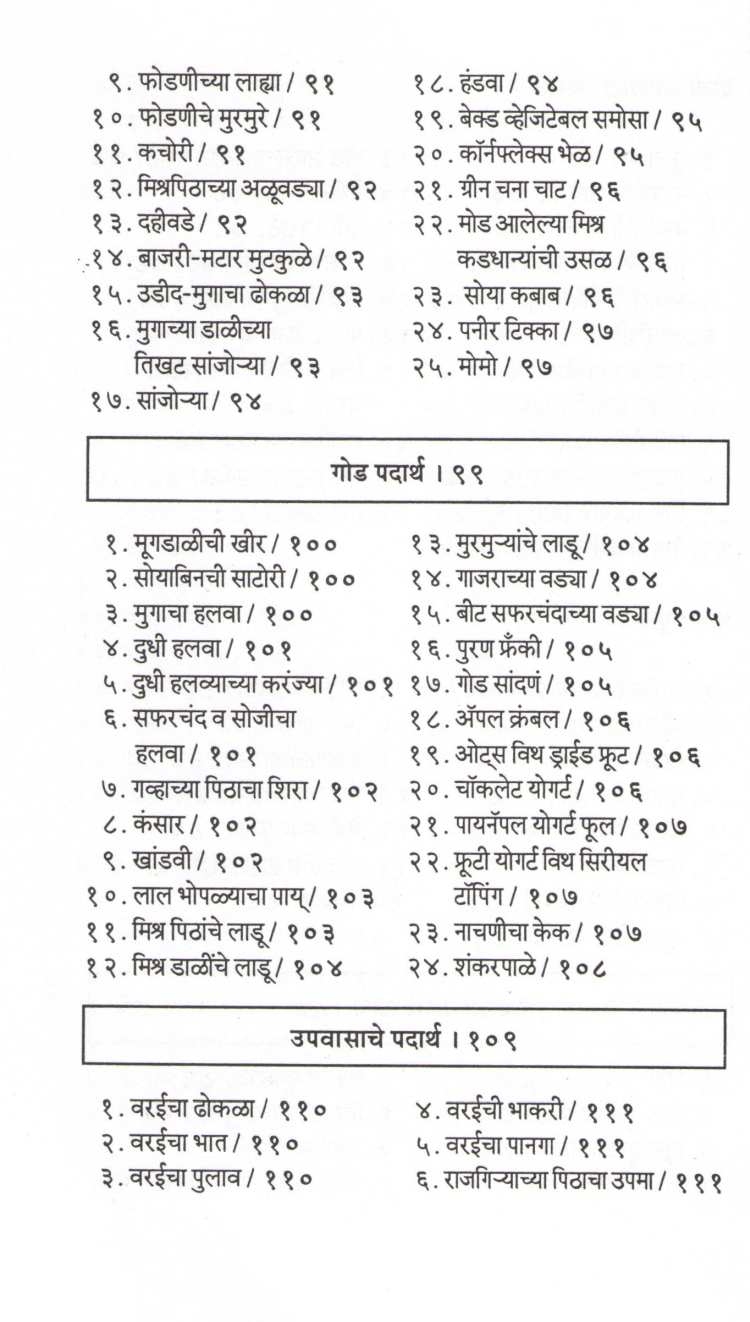 ९. फोडणीच्या लाह्या / ९१
१०. फोडणीचे मुरमुरे / ९१
११. कचोरी / ९१
१२. मिश्रपिठाच्या अळूवड्या / ९२
१३. दहीवडे / ९२
१४. बाजरी-मटार मुटकुळे / ९२
१५. उडीद-मुगाचा ढोकळा / ९३
१६. मुगाच्या डाळीच्या
तिखट सांजोऱ्या / ९३
१७. सांजोऱ्या / ९४
१८. हंडवा / ९४
१९. बेक्ड व्हेजिटेबल समोसा / ९५
२०. कॉर्नफ्लेक्स भेळ / ९५
२१. ग्रीन चना चाट / ९६
२२. मोड आलेल्या मिश्र
कडधान्यांची उसळ / ९६
२३. सोया कबाब / ९६
२४. पनीर टिक्का / ९७
२५. मोमो / ९७
गोड पदार्थ । ९९
१. मूगडाळीची खीर / १००
२. सोयाबिनची साटोरी / १००
३. मुगाचा हलवा / १००
४. दुधी हलवा / १०१
५. दुधी हलव्याच्या करंज्या / १०१
६. सफरचंद व सोजीचा
हलवा / १०१
७. गव्हाच्या पिठाचा शिरा / १०२
८. कंसार / १०२
९. खांडवी / १०२
१०. लाल भोपळ्याचा पाय् / १०३
११. मिश्र पिठांचे लाडू / १०३
१२. मिश्र डाळींचे लाडू / १०४
१३. मुरमुऱ्यांचे लाडू / १०४
१४. गाजराच्या वड्या / १०४
१५. बीट सफरचंदाच्या वड्या / १०५
१६. पुरण फ्रँकी / १०५
१७. गोड सांदणं / १०५
१८. ॲपल क्रंबल / १०६
१९. ओट्स विथ ड्राईड फ्रूट / १०६
२०. चॉकलेट योगर्ट / १०६
२१. पायनॅपल योगर्ट फूल / १०७
२२. फ्रूटी योगर्ट विथ सिरीयल
टॉपिंग / १०७
२३. नाचणीचा केक / १०७
२४. शंकरपाळे / १०८
उपवासाचे पदार्थ । १०९
१. वरईचा ढोकळा / ११०
२. वरईचा भात / ११०
३. वरईचा पुलाव / ११०
४. वरईची भाकरी / १११
५. वरईचा पानगा / १११
६. राजगिऱ्याच्या पिठाचा उपमा / १११